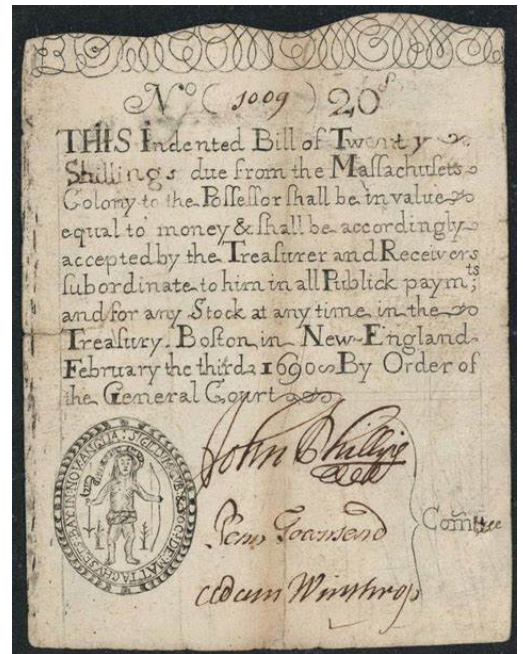 No ( 1009 ) 20s
THIS Indented Bill of Twenty
Shillings due from the Massachusets
Colony to the Poſſeſſor ſhall be in value
equal to money & ſhall be accordingly
accepted by the Treaſurer and Receivers
ſubordinate to him in all Publick paymts;
and for any Stock at any time in the
Treaſury. Boſton in New-England
February the third 1690 By Order of
the General Court
John Phillips
Penn Townsend
Adam Winthrop
Comtee
SIGILLVM:
IN:NOV:ANGLIA: